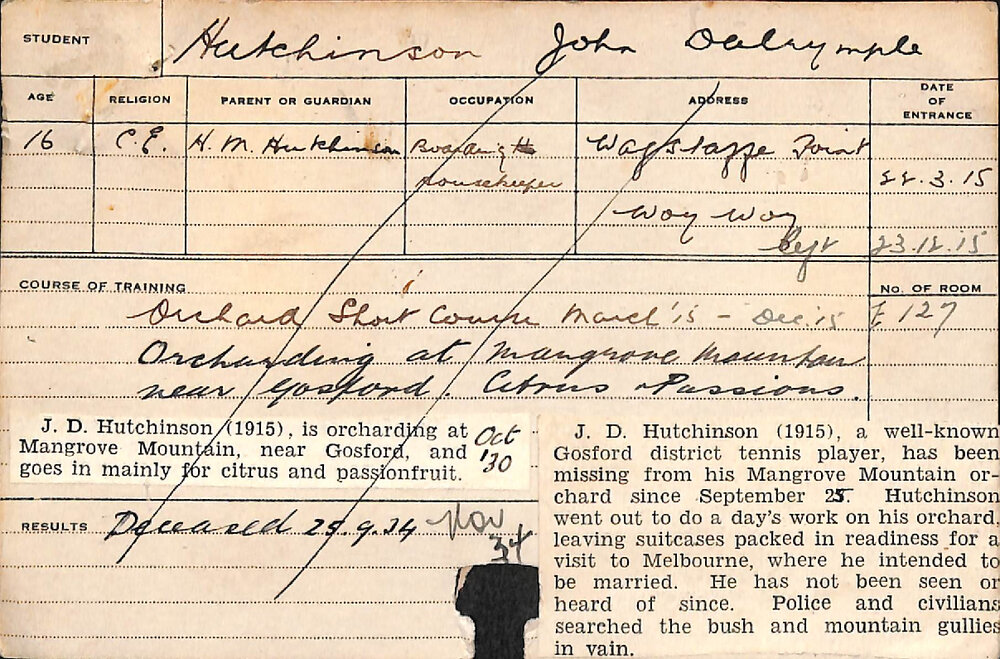 STUDENT Hutchinson John Dalrymple
AGE RELIGION PARENT OR GUARDIAN OCCUPATION ADDRESS DATE OF ENTRANCE
16 C.E. H. M. Hutchinson Boarding H Wagstaffe Point
housekeeper 22.3.15
Woy Woy
left 23.12.15
COURSE OF TRAINING No. OF ROOM
Orchard Short Course March '15 - Dec. '15 E 127
Orcharding at Mangrove Mountain
near Gosford. Citrus & Passions.
J. D. Hutchinson (1915), is orcharding at
Mangrove Mountain, near Gosford, and
goes in mainly for citrus and passionfruit.
Oct
'30
J. D. Hutchinson (1915), a well-known
Gosford district tennis player, has been
missing from his Mangrove Mountain or-
chard since September 25. Hutchinson
went out to do a day's work on his orchard,
leaving suitcases packed in readiness for a
visit to Melbourne, where he intended to
be married. He has not been seen or
heard of since. Police and civilians
searched the bush and mountain gullies
in vain.
RESULTS Deceased 25.9.34 Nov
34